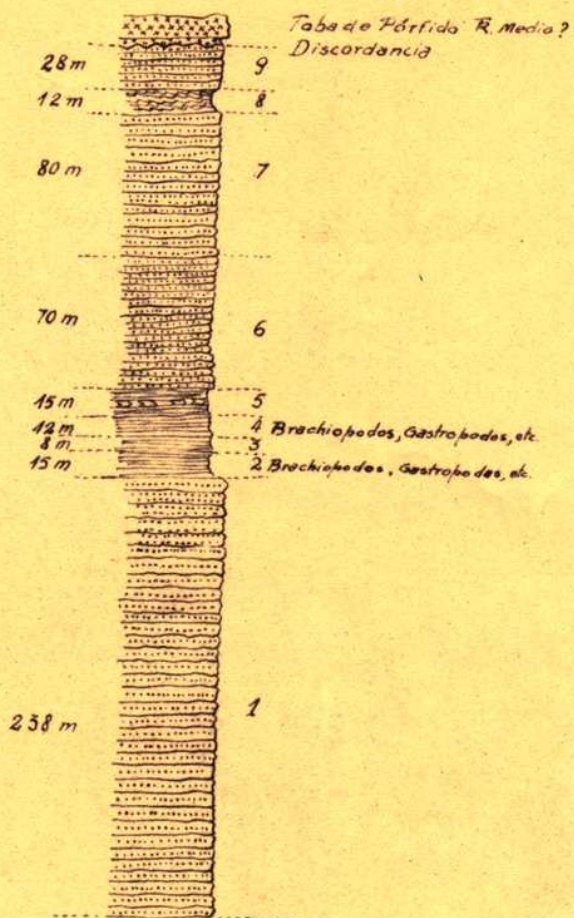 Toba de Pórfido TR. Medio?
Discordancia
28 m 9
12 m 8
80 m 7
70 m 6
15 m 5
12 m 4 Brachiopodos, Gastropodos, etc.
8 m 3
15 m 2 Brachiopodos, Gastropodos, etc.
238 m 1